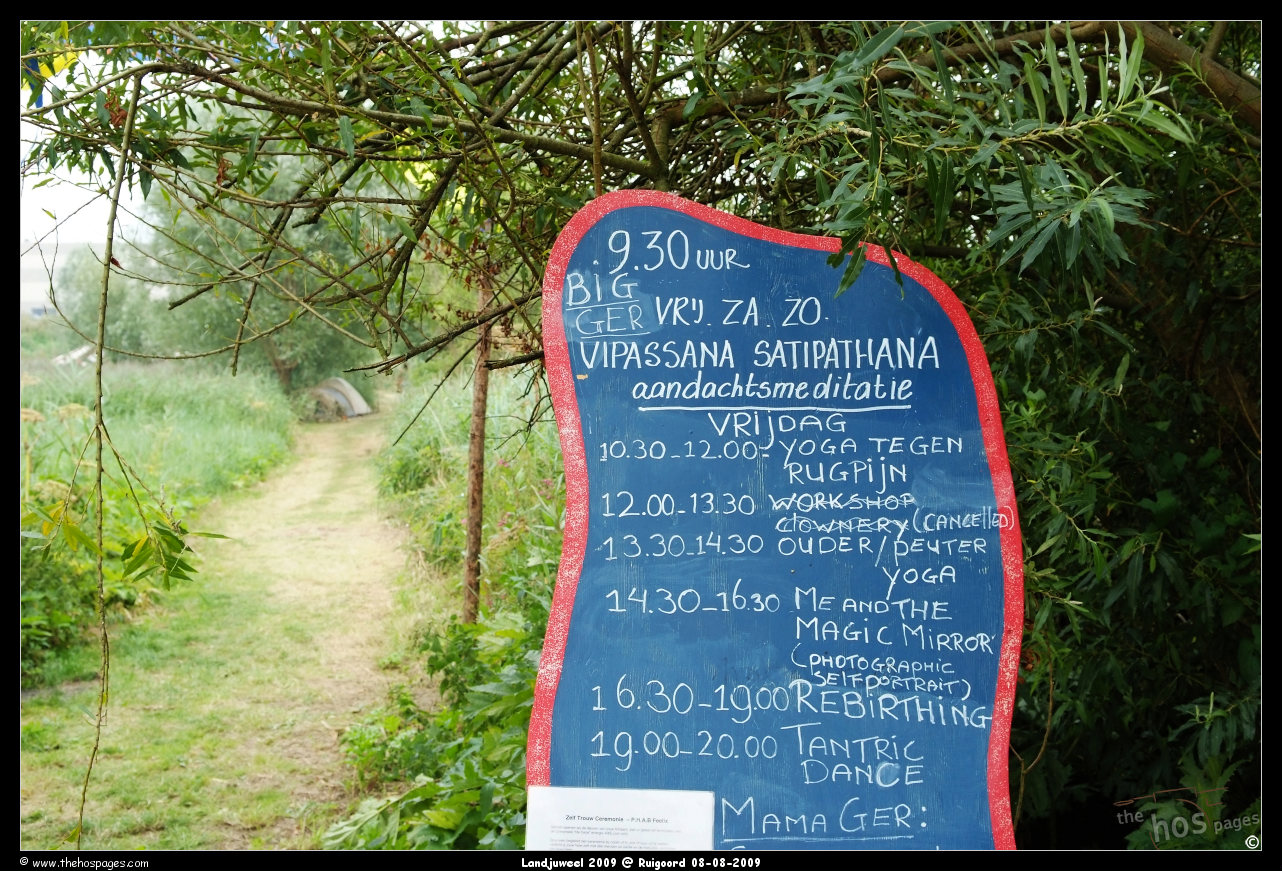 9.30 UUR
BIG
GER VRIJ. ZA. ZO.
VIPASSANA SATIPATHANA
aandachtsmeditatie
VRIJDAG
10.30-12.00- YOGA TEGEN
RUGPIJN
12.00-13.30 WORKSHOP
CLOWNERY (CANCELLED)
13.30-14.30 OUDER/PEUTER
YOGA
14.30-16.30 ME AND THE
MAGIC MIRROR
(PHOTOGRAPHIC
SELFPORTRAIT)
16.30-19.00 REBIRTHING
19.00-20.00 TANTRIC
DANCE
MAMA GER:
Zelf Trouw Ceremonie - P.H.A.B Feeliz
the hos pages
©
© www.thehospages.com
Landjuweel 2009 @ Ruigoord 08-08-2009